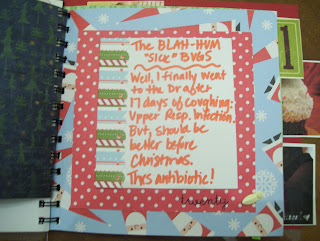 The BLAH-HUM
"Sick" BUGS
Well, I finally went
to the Dr after
17 days of coughing.
Upper Resp. Infection.
But, should be
better before
Christmas.
Thxs antibiotic!
twenty
1